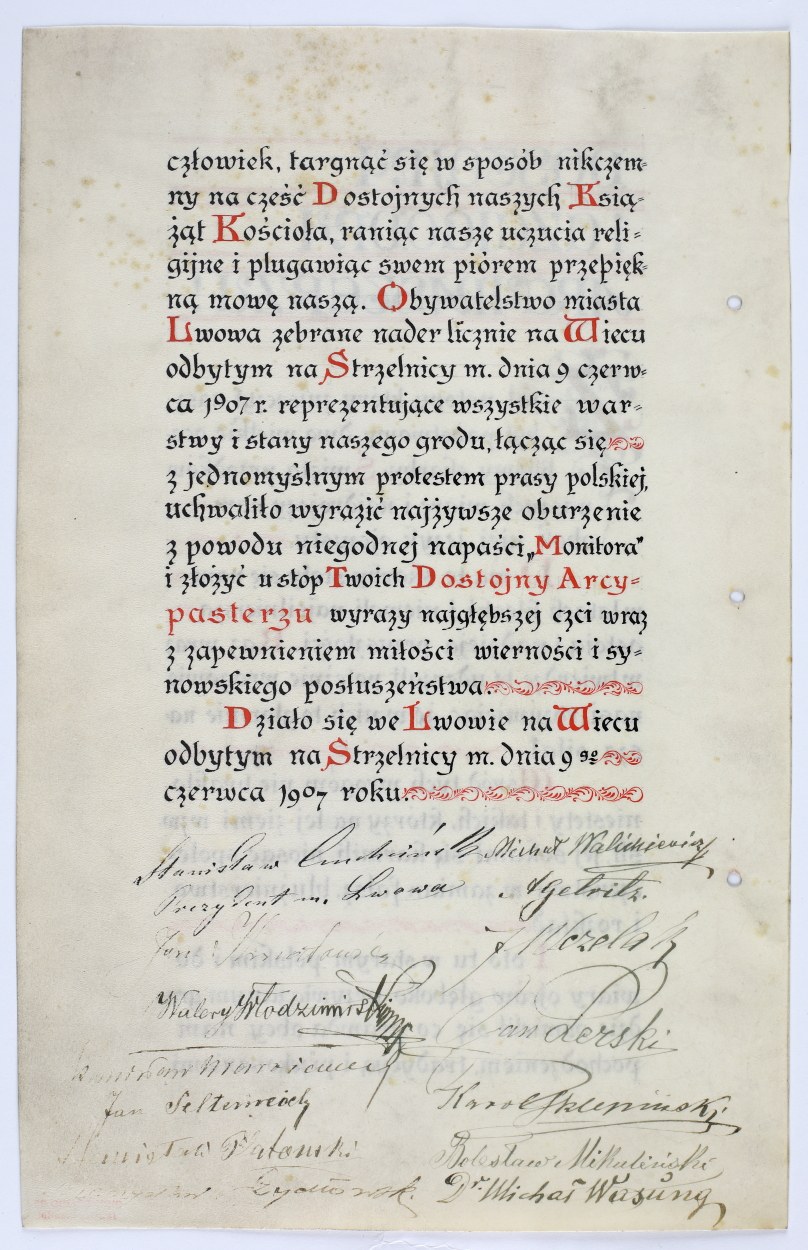 człowiek, targnąć się w sposób nikczem-
ny na cześć Dostojnych naszych Ksią-
żąt Kościoła, raniąc nasze uczucia reli-
gijne i plugawiąc swem piórem przepięk-
ną mowę naszą. Obywatelstwo miasta
Lwowa zebrane nader licznie na Wiecu
odbytym na Strzelnicy m. dnia 9 czerw-
ca 1907 r. reprezentujące wszystkie war-
stwy i stany naszego grodu, łącząc się
z jednomyślnym protestem prasy polskiej,
uchwaliło wyrazić najżywsze oburzenie
z powodu niegodnej napaści „Monitora"
i złożyć u stóp Twoich Dostojny Arcy-
pasterzu wyrazy najgłębszej czci wraz
z zapewnieniem miłości wierności i sy-
nowskiego posłuszeństwa.
Działo się we Lwowie na Wiecu
odbytym na Strzelnicy m. dnia 9 go
czerwca 1907 roku.
Stanisław Michał Walichiewicz
Prezydent m. Lwowa
Jan
Walery Włodzimirski Jan Perski
Jan Karol
Bolesław Mikuliński
Dr. Michał Wasung